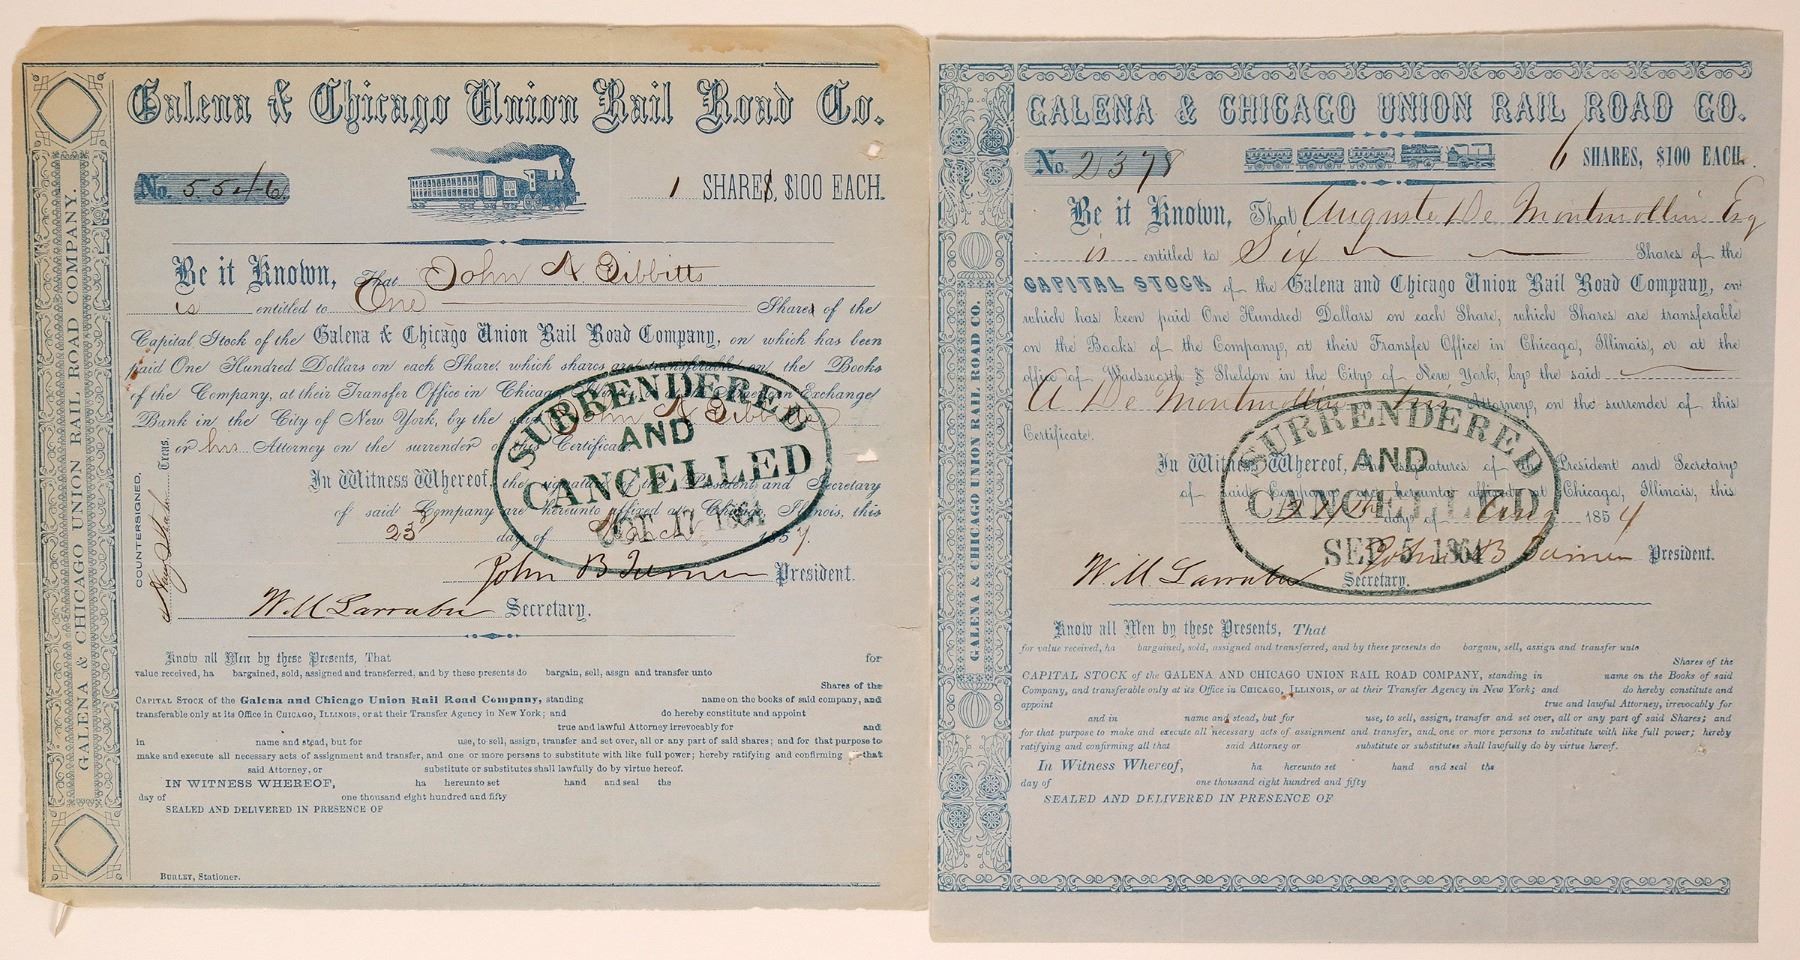 Galena & Chicago Union Rail Road Co.
No. 5546
1 SHARES, $100 EACH.
Be it Known, That John A Tibbitts
is entitled to One Shares of the
Capital Stock of the Galena & Chicago Union Rail Road Company, on which has been
paid One Hundred Dollars on each Share, which shares are transferable on the Books
of the Company, at their Transfer Office in Chicago, American Exchange
Bank in the City of New York, by the said John A Tibbitts
or his Attorney on the surrender of this Certificate.
In Witness Whereof, the signatures of the President and Secretary
of said Company are hereunto affixed at Chicago, Illinois, this
23d day of March 1857.
John B Turner President.
W. M. Larrabee Secretary.
COUNTERSIGNED,
Treas.
GALENA & CHICAGO UNION RAIL ROAD COMPANY.
SURRENDERED
AND
CANCELLED
OCT 17 1864
Know all Men by these Presents, That for
value received, ha bargained, sold, assigned and transferred, and by these presents do bargain, sell, assgn and transfer unto
Shares of the
CAPITAL STOCK of the Galena and Chicago Union Rail Road Company, standing name on the books of said company, and
transferable only at its Office in CHICAGO, ILLINOIS, or at their Transfer Agency in New York; and do hereby constitute and appoint
true and lawful Attorney irrevocably for and
in name and stead, but for use, to sell, assign, transfer and set over, all or any part of said shares; and for that purpose to
make and execute all necessary acts of assignment and transfer, and one or more persons to substitute with like full power; hereby ratifying and confirming that
said Attorney, or substitute or substitutes shall lawfully do by virtue hereof.
IN WITNESS WHEREOF, ha hereunto set hand and seal the
day of one thousand eight hundred and fifty
SEALED AND DELIVERED IN PRESENCE OF
BURLEY, Stationer.
GALENA & CHICAGO UNION RAIL ROAD CO.
No. 2378
6 SHARES, $100 EACH.
Be it Known, That Auguste De Montmollin Esq
is entitled to Six Shares of the
CAPITAL STOCK of the Galena and Chicago Union Rail Road Company, on
which has been paid One Hundred Dollars on each Share, which Shares are transferable
on the Books of the Company, at their Transfer Office in Chicago, Illinois, or at the
office of Wadsworth & Sheldon in the City of New York, by the said
A De Montmollin or his Attorney, on the surrender of this
Certificate.
In Witness Whereof, the signatures of the President and Secretary
of said Company are hereunto affixed at Chicago, Illinois, this
day of Aug 1854
John B Turner President.
W. M. Larrabee Secretary.
GALENA & CHICAGO UNION RAIL ROAD CO.
SURRENDERED
AND
CANCELLED
SEP 5 1864
Know all Men by these Presents, That
for value received, ha bargained, sold, assigned and transferred, and by these presents do bargain, sell, assign and transfer unto
Shares of the
CAPITAL STOCK of the GALENA AND CHICAGO UNION RAIL ROAD COMPANY, standing in name on the Books of said
Company, and transferable only at its Office in CHICAGO, ILLINOIS, or at their Transfer Agency in New York; and do hereby constitute and
appoint true and lawful Attorney, irrevocably for
and in name and stead, but for use, to sell, assign, transfer and set over, all or any part of said Shares; and
for that purpose to make and execute all necessary acts of assignment and transfer, and, one or more persons to substitute with like full power; hereby
ratifying and confirming all that said Attorney or substitute or substitutes shall lawfully do by virtue hereof.
In Witness Whereof, ha hereunto set hand and seal the
day of one thousand eight hundred and fifty
SEALED AND DELIVERED IN PRESENCE OF